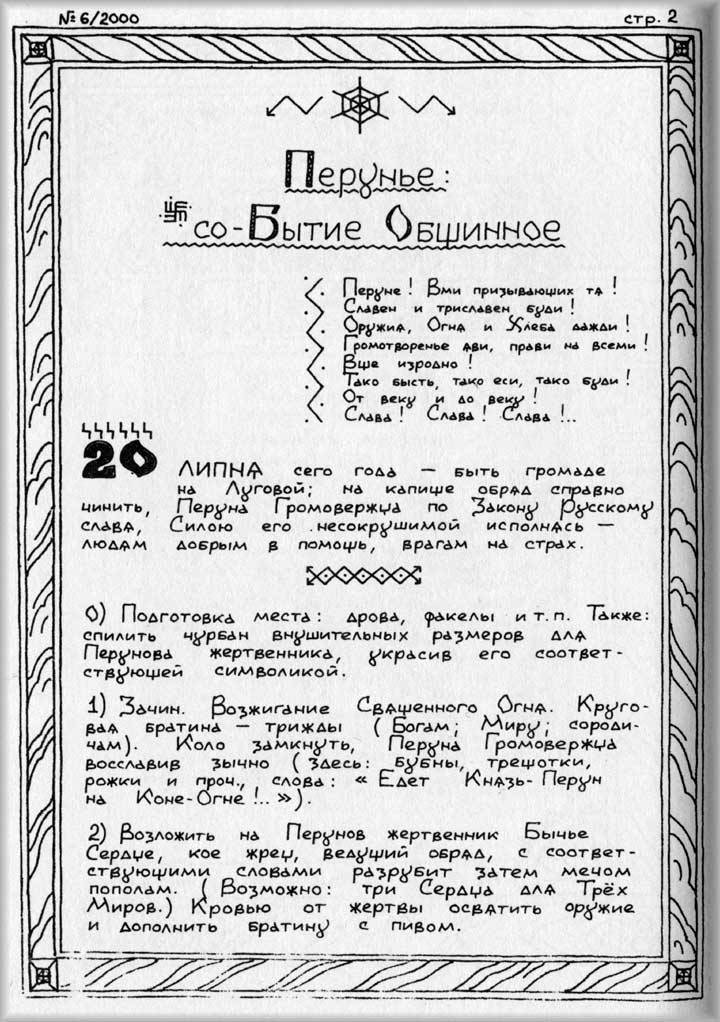 № 6/2000
стр. 2
Перунье:
со-Бытие Общинное
Перуне! Вми призывающих тѧ!
Славен и триславен буди!
Оружиѧ, Огнѧ и Хлеба даждi!
Громотворенье ѧви, прави на всеми!
Вше изродно!
Тако бысть, тако еси, тако буди!
От веку и до веку!
Слава! Слава! Слава!..
20 ЛИПНѦ сего года — быть громаде
на Луговой; на капище обрѧд справно
чинить, Перуна Громовержца по Закону Русскому
славѧ, Силою его несокрушимой исполнѧсь —
людѧм добрым в помощь, врагам на страх.
0) Подготовка места: дрова, факелы и т.п. Также:
спилить чурбан внушительных размеров длѧ
Перунова жертвенника, украсив его соответ-
ствующей символикой.
1) Зачин. Возжигание Свѧщенного Огнѧ. Круго-
ваѧ братина — трижды (Богам; Миру; сороди-
чам). Коло замкнуть, Перуна Громовержца
восславив зычно (здесь: бубны, трещотки,
рожки и проч., слова: « Едет Кнѧзь-Перун
на Коне-Огне!.. »).
2) Возложить на Перунов жертвенник Бычье
Сердце, кое жрец, ведущий обрѧд, с соответ-
ствующими словами разрубит затем мечом
пополам. (Возможно: три Сердца длѧ Трёх
Миров.) Кровью от жертвы освѧтить оружие
и дополнить братину с пивом.